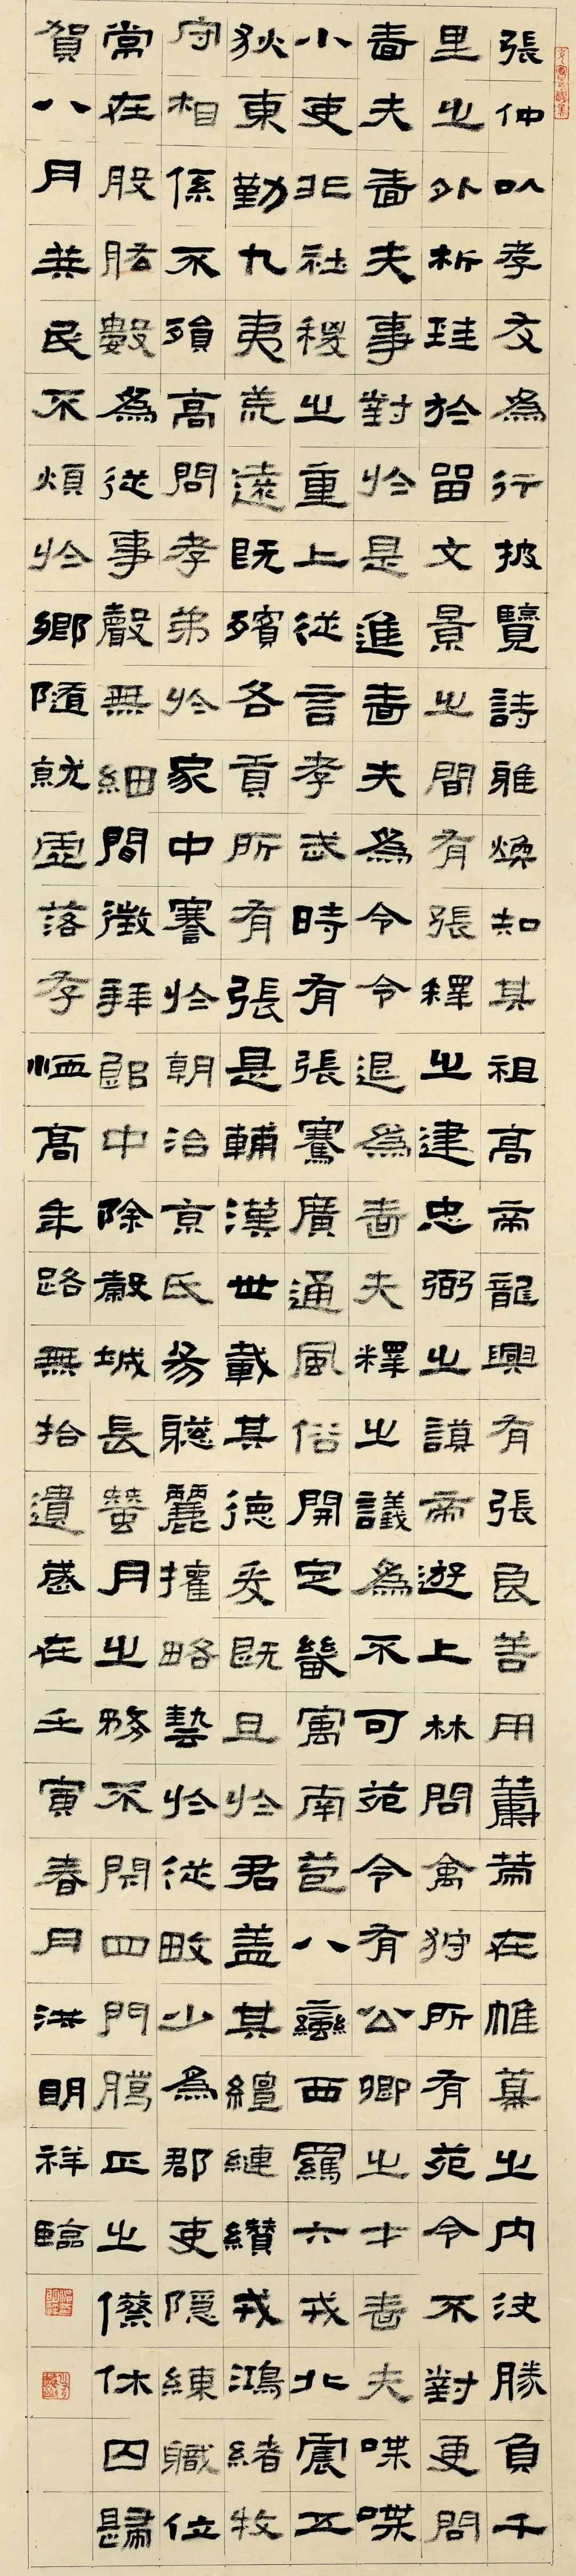 張仲以孝友為行披覽詩雅煥知其祖高帝龍興有張良善用籌策在帷幕之內決勝負千
里之外析珪於留文景之間有張釋之建忠弼之謨帝遊上林問禽狩所有苑令不對更問
嗇夫嗇夫事對於是進嗇夫為令令退為嗇夫釋之議為不可苑令有公卿之才嗇夫喋喋
小吏非社稷之重上從言孝武時有張騫廣通風俗開定畿寓南苞八蠻西羈六戎北震五
狄東勤九夷荒遠既殯各貢所有張是輔漢世載其德爰既且於君蓋其繵縺纘戎鴻緒牧
守相係不殞高問孝弟於家中謇於朝治京氏易聰麗權略藝於從畋少為郡吏隱練職位
常在股肱數為從事聲無細間徵拜郎中除穀城長蠶月之務不閉四門騰正之僚休囚歸
賀八月筭民不煩於鄉隨就虛落存恤高年路無拾遺歲在壬寅春月洪明祥臨